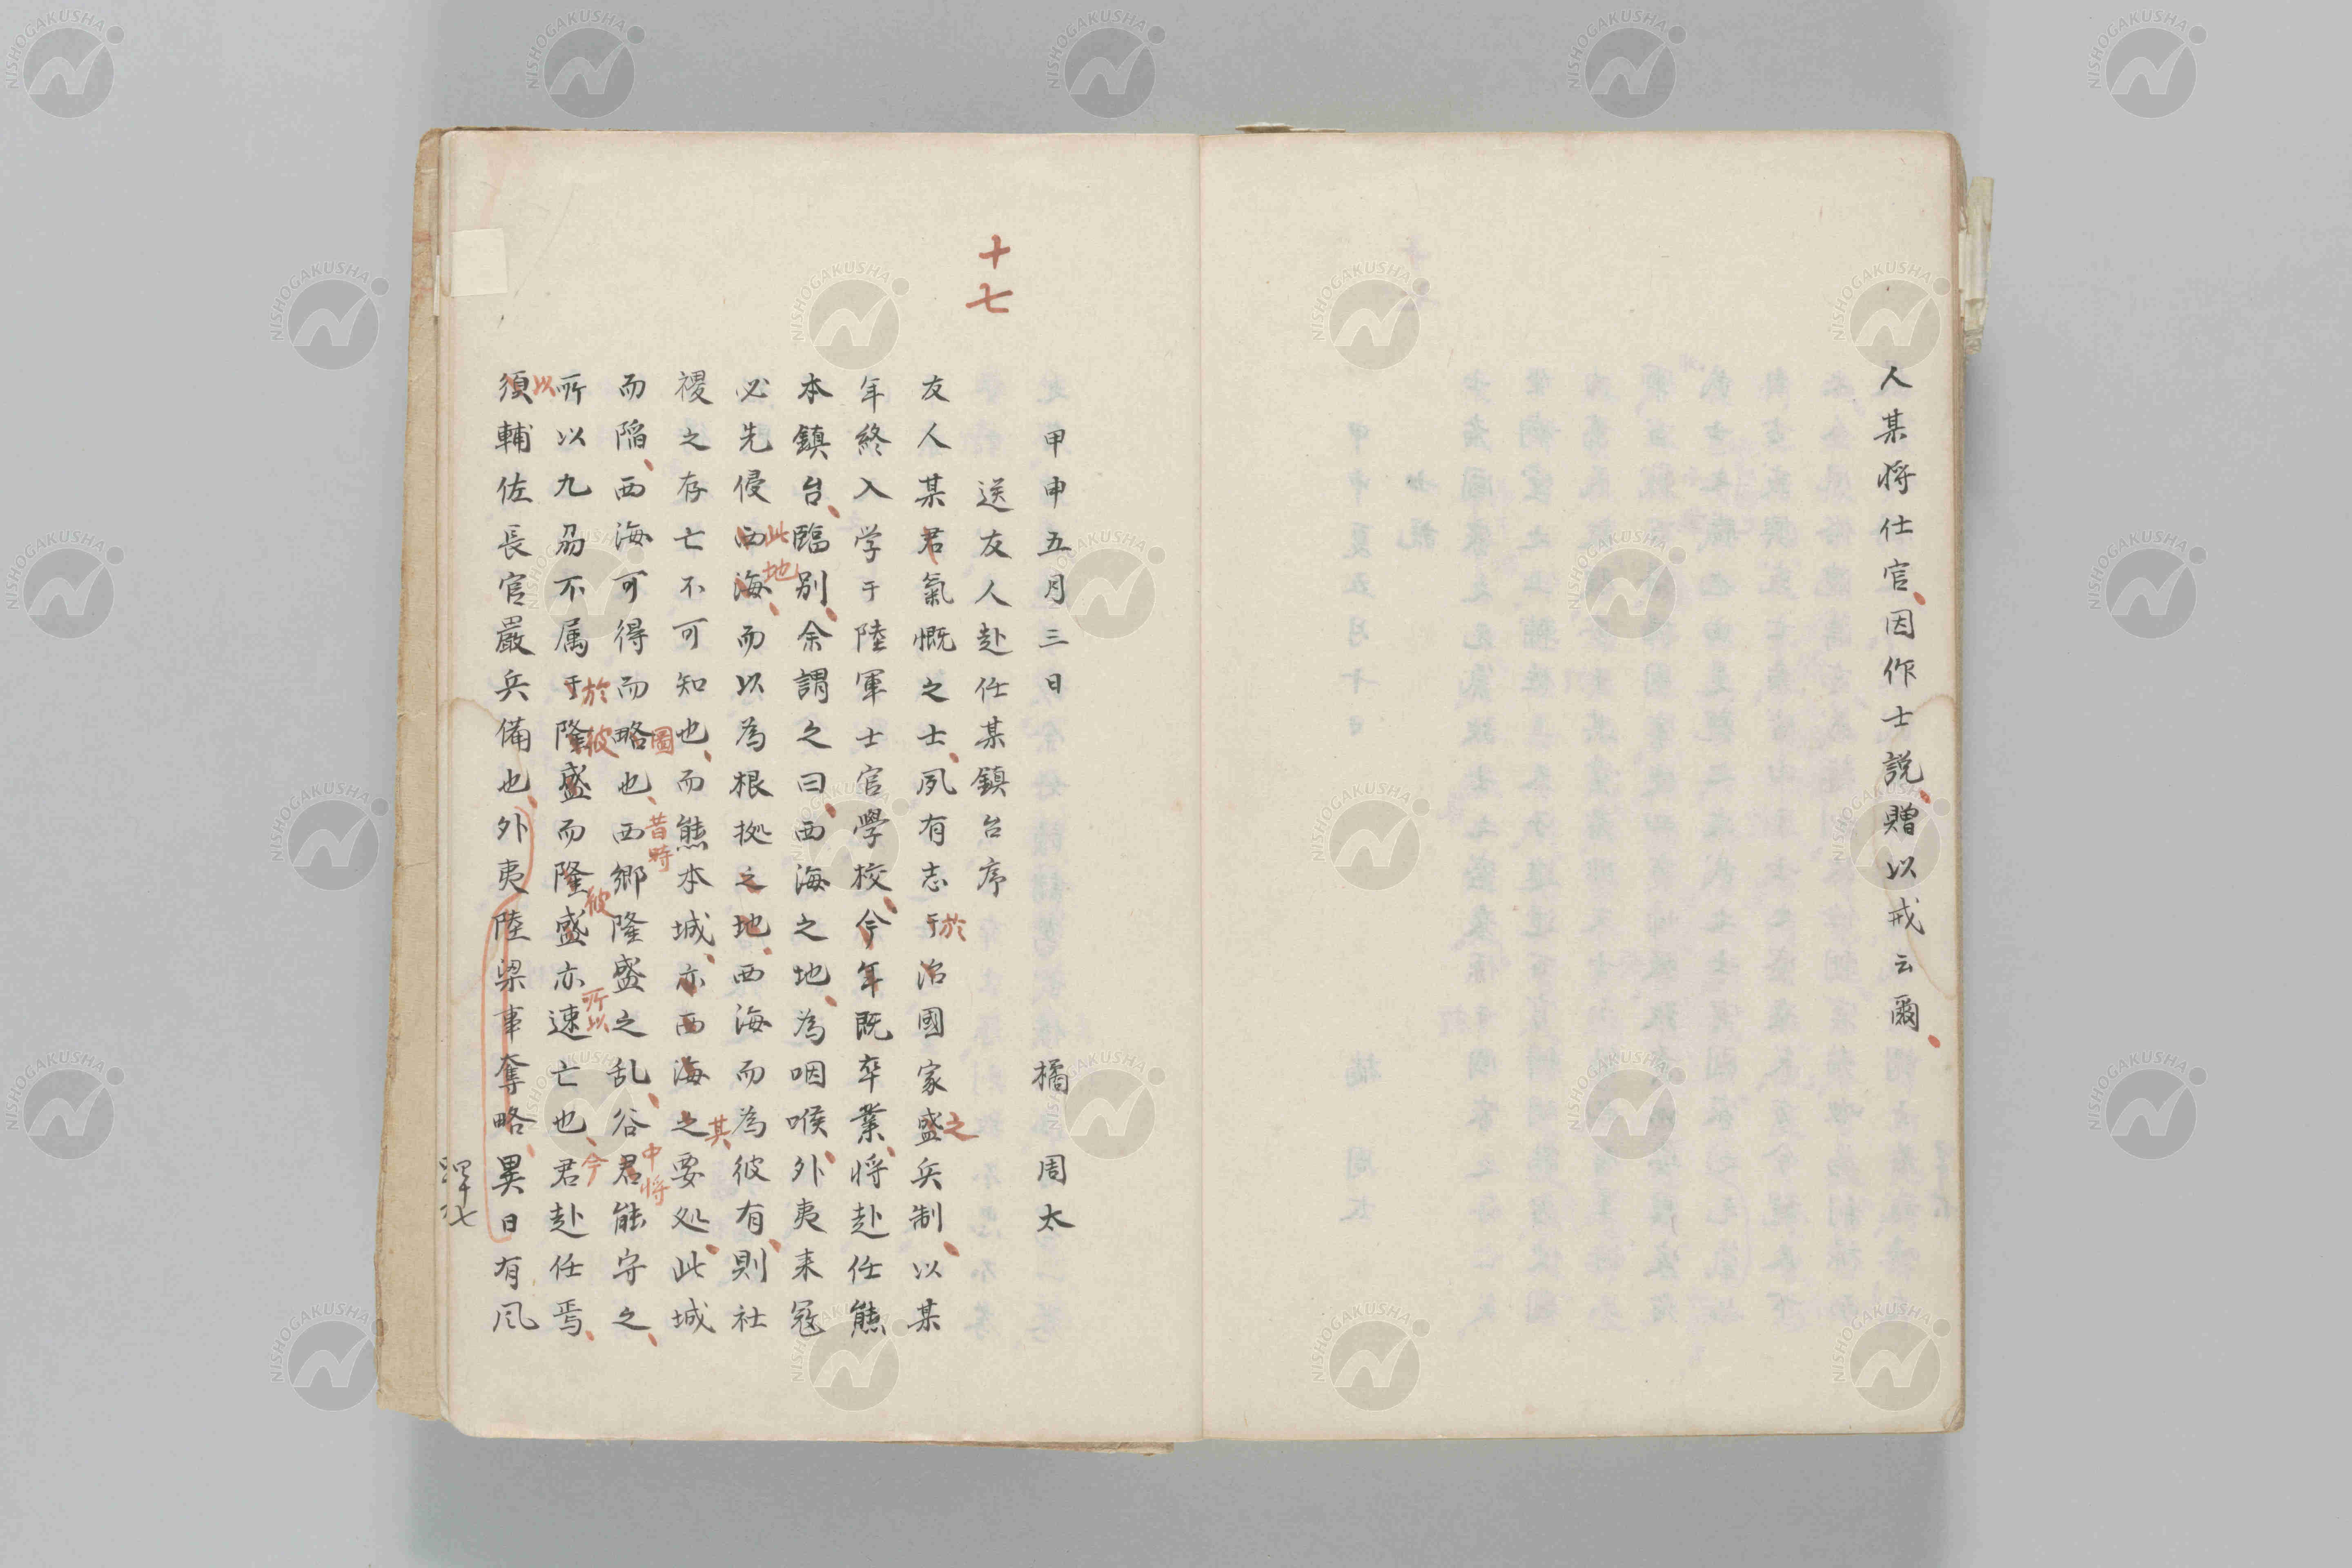 人某将仕官因作士説贈以戒云爾
甲申五月三日 橘周太
十七
送友人赴任某鎮台序
友人某君氣慨之士夙有志于治國家盛兵制以某
於
之
年終入学于陸軍士官學校今年既卒業将赴任熊
本鎮台臨別余謂之曰西海之地為咽喉外夷来冦
此地
必先侵西海而以為根拠之地西海而為彼有則社
稷之存亡不可知也而熊本城亦西海之要処此城
其
圖
而陥西海可得而略也西郷隆盛之乱谷君能守之
昔時
中将
所以九芻不属于隆盛而隆盛亦速亡也君赴任焉
於彼
彼
所以
今
以
須輔佐長官嚴兵備也外夷陸梁事奪略異日有風
四十七
NISHOGAKUSHA